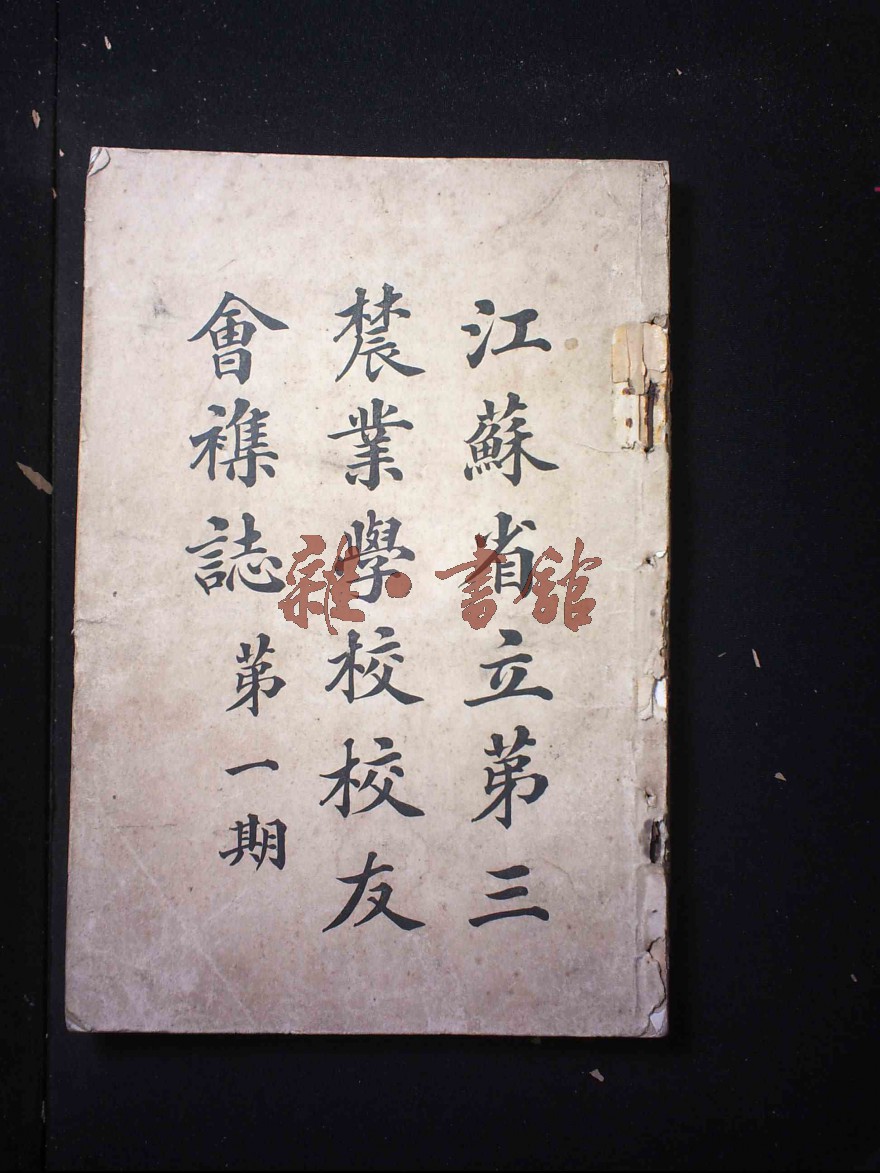 江蘇省立第三
辳業學校校友
會襍誌第一期
雜·書館